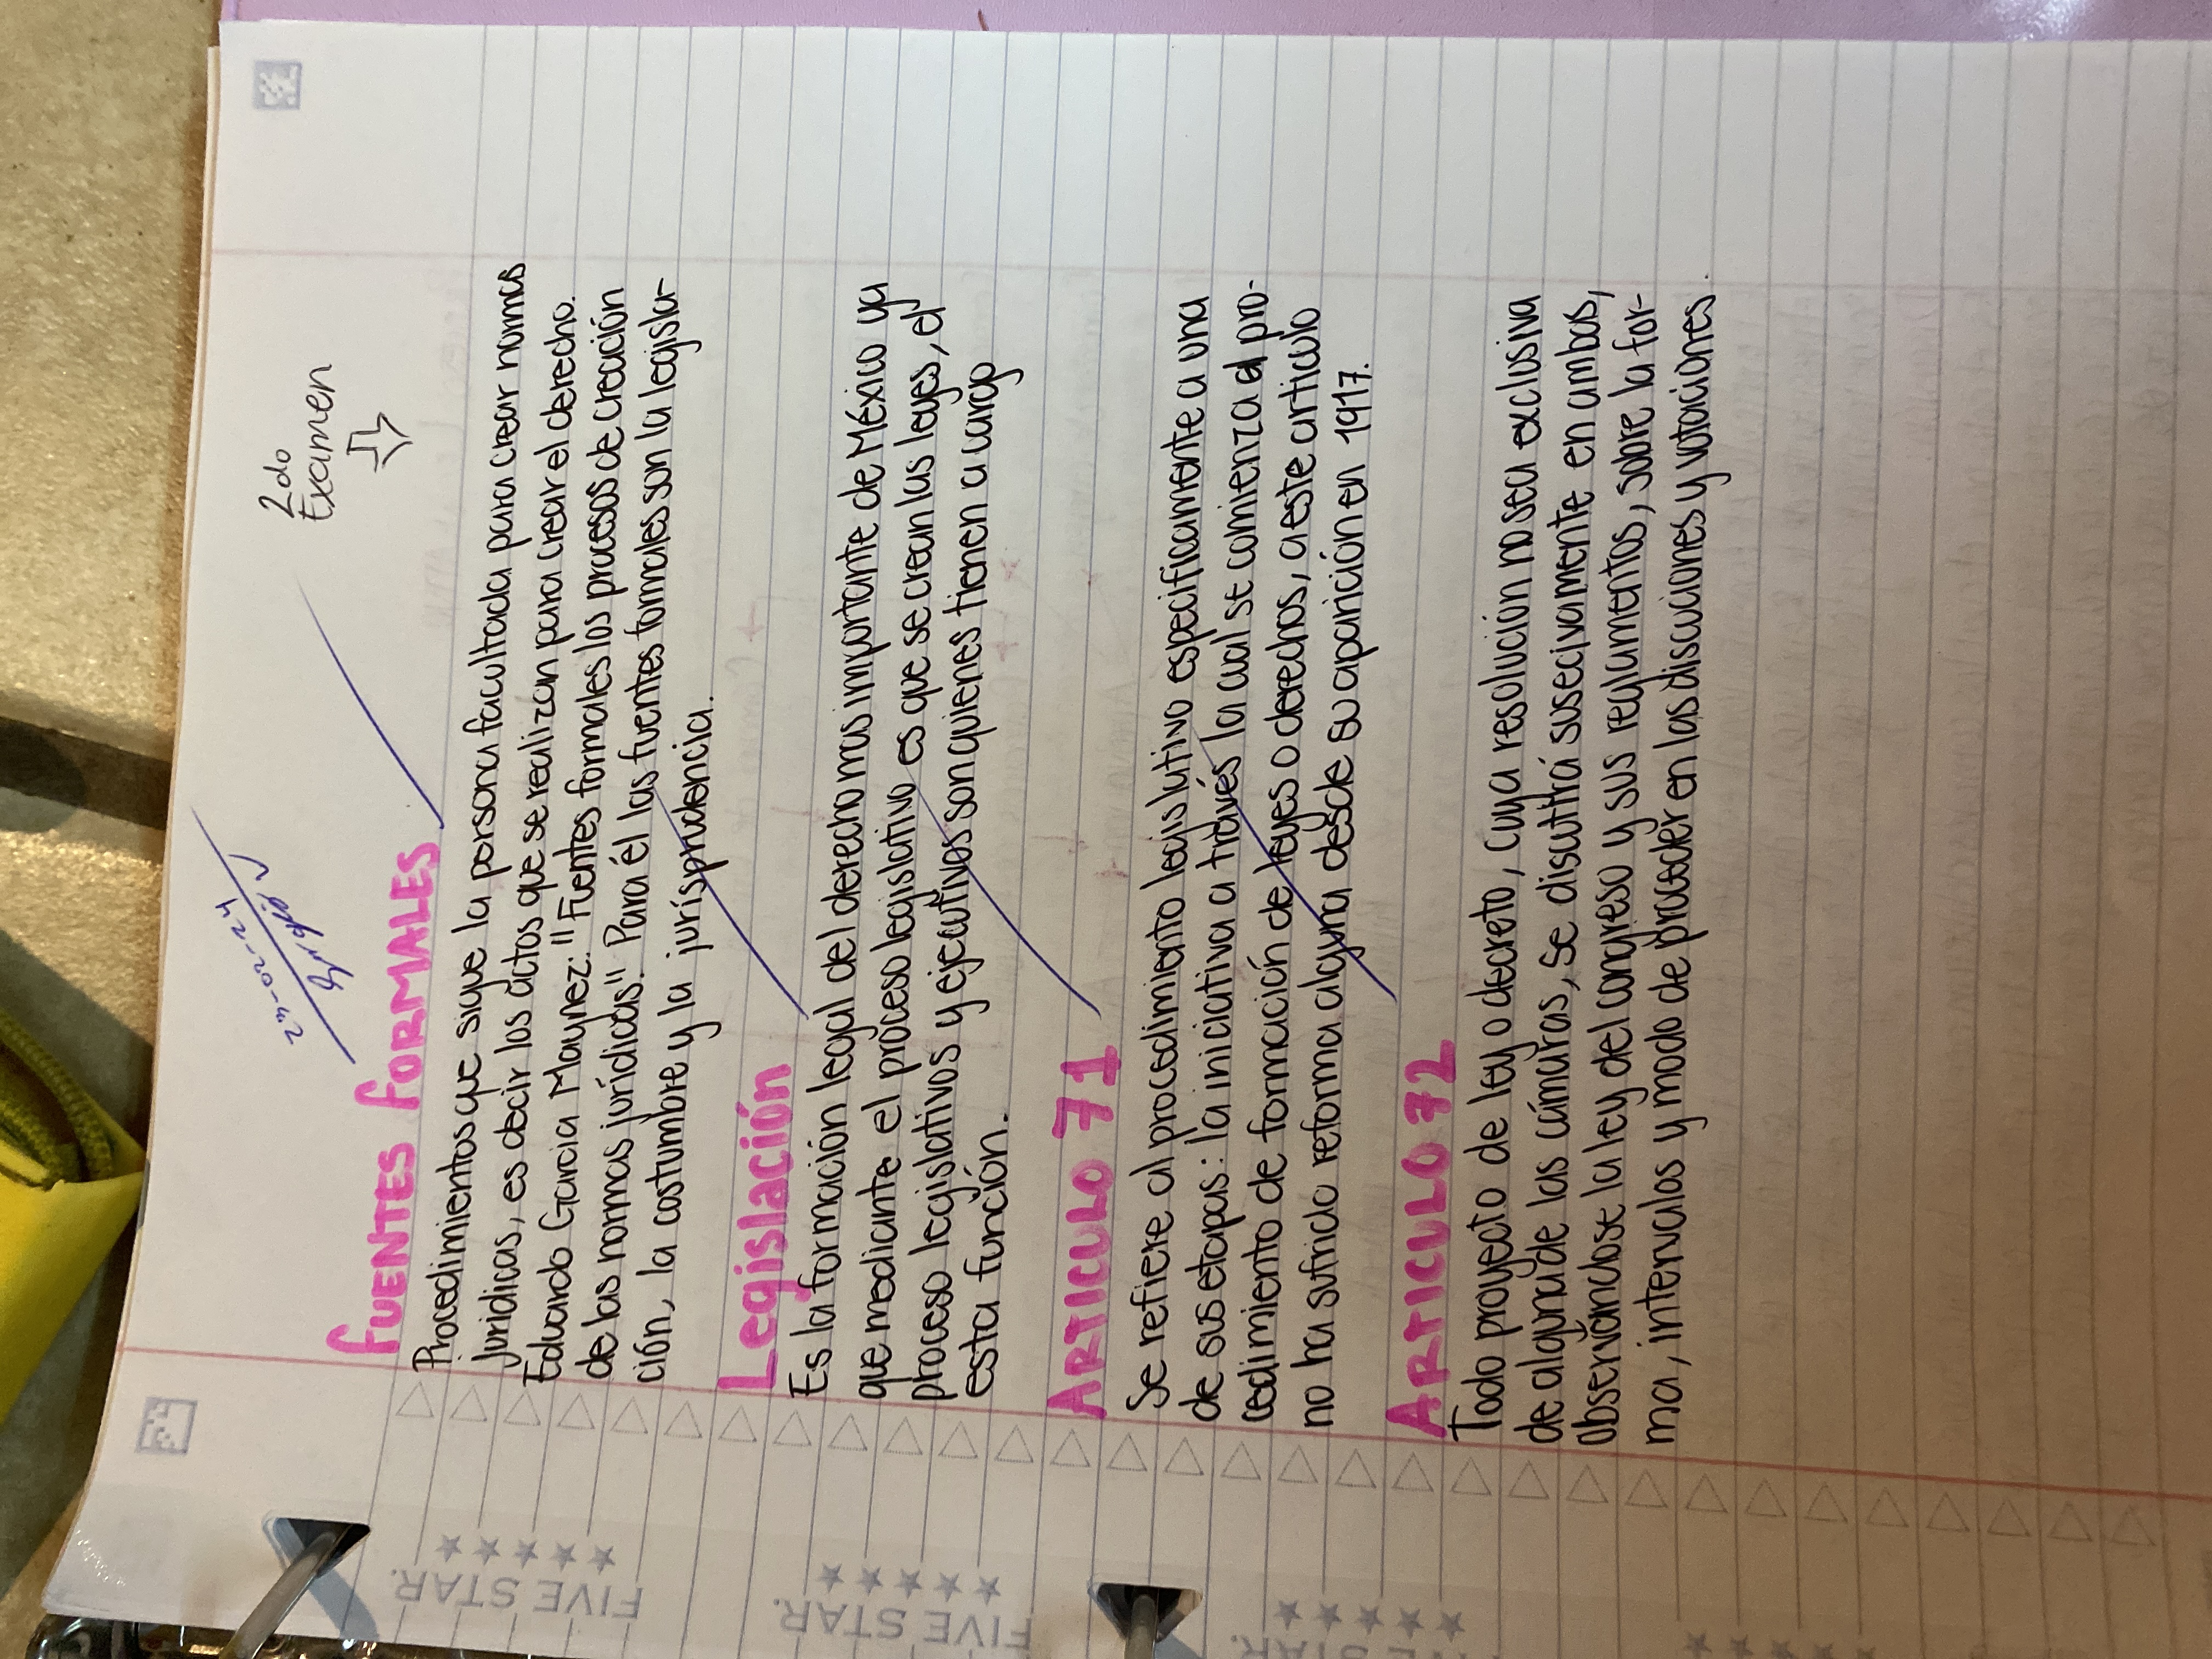 2do
Examen
2m-02-24
FUENTES FORMALES
Procedimientos que sigue la persona facultada para crear normas
jurídicas, es decir los actos que se realizan para crear el derecho.
Eduardo García Maynez: "Fuentes formales los procesos de creación
de las normas jurídicas". Para él las fuentes formales son la legisla-
ción, la costumbre y la jurisprudencia.
Legislación
Es la formación legal del derecho mas importante de México ya
que mediante el proceso legislativo es que se crean las leyes, el
proceso legislativos y ejecutivos son quienes tienen a cargo
esta función.
ARTICULO 71
Se refiere al procedimiento legislativo especificamente a una
de sus etapas: la iniciativa a través la cual se comienza el pro-
cedimiento de formación de leyes o derechos, a este articulo
no ha sufrido reforma alguna desde su aparición en 1917.
ARTICULO 72
Todo proyecto de ley o decreto, cuya resolución no sea exclusiva
de alguna de las cámaras, se discutirá susecivamente en ambas,
observándose la ley del congreso y sus reglamentos, sobre la for-
ma, intervalos y modo de proceder en las discuciones y votaciones.
FIVE STAR.
FIVE STAR.
FIVE STAR.